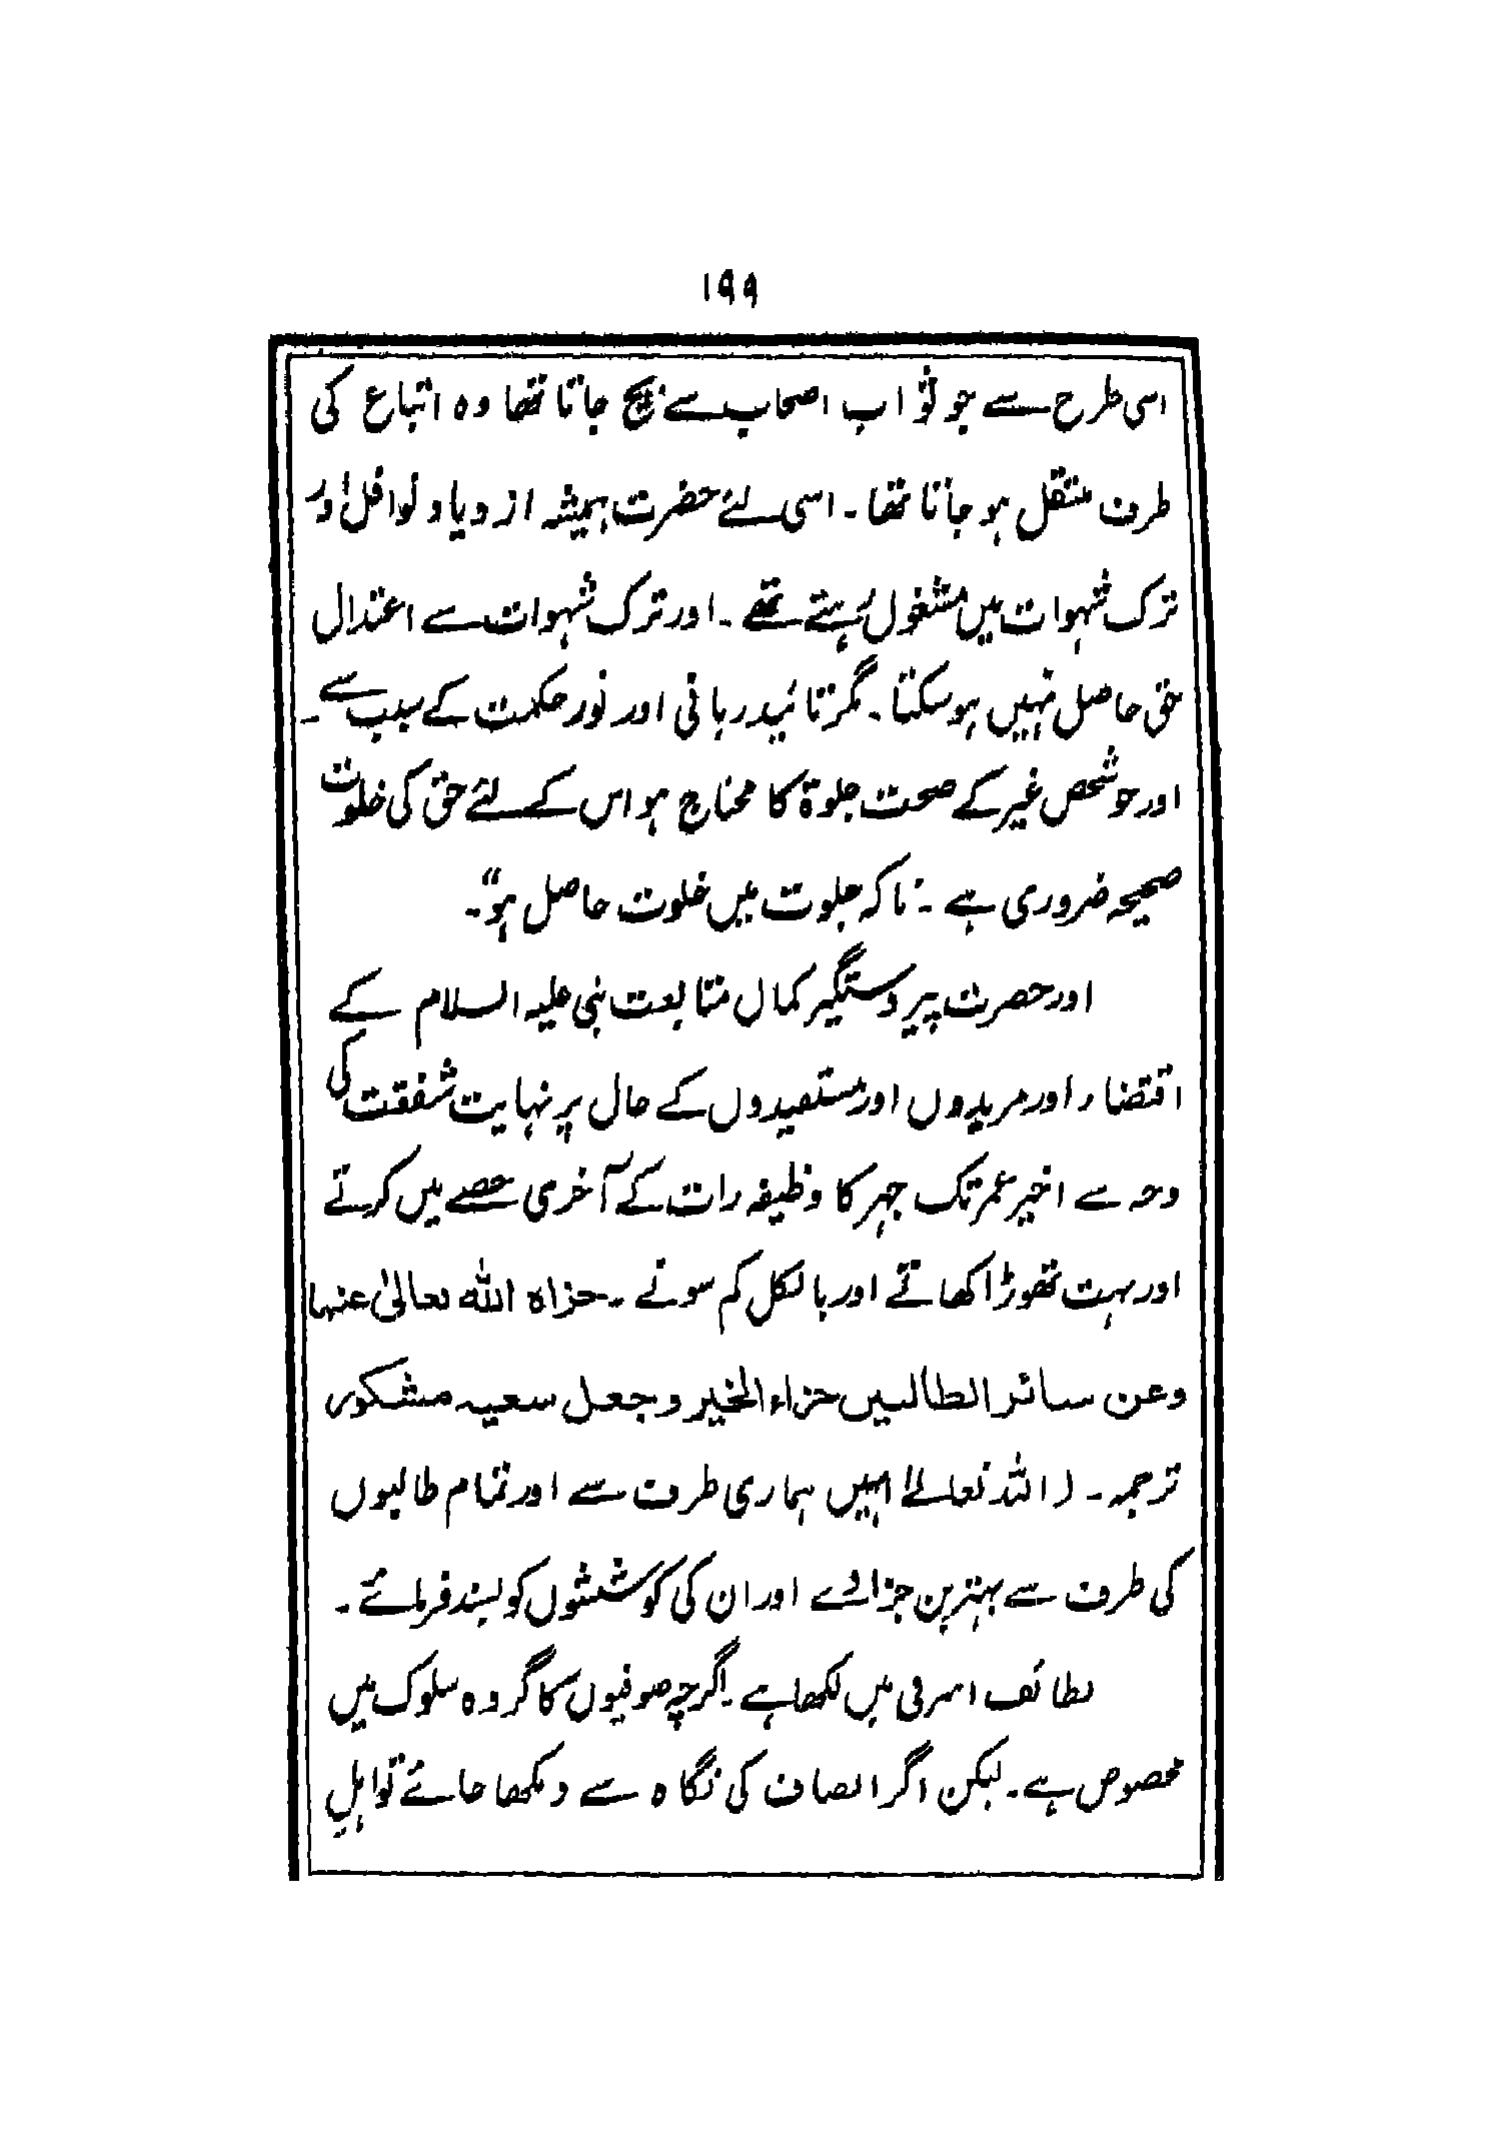 ۱۹۹
اسی طرح سے جو ثواب اصحاب سے بچ جاتا تھا وہ اتباع کی
طرف منتقل ہو جاتا تھا۔ اسی لئے حضرت ہمیشہ ازدیاد نوافل اور
ترک شہوات میں مشغول رہتے تھے۔ اور ترک شہوات سے اعتدال
حق حاصل نہیں ہو سکتا۔ مگر تائید ربانی اور نور حکمت کے سبب سے۔
اور جو شخص غیر کے صحت جلوۃ کا محتاج ہو اس کے لئے حق کی خلوت
صحیحہ ضروری ہے۔ تاکہ جلوت میں خلوت حاصل ہو“۔
اور حضرت پیر دستگیر کمال متابعت نبی علیہ السلام کے
اقتضاء اور مریدوں اور مستفیدوں کے حال پر نہایت شفقت کی
وجہ سے اخیر عمر تک جہر کا وظیفہ رات کے آخری حصے میں کرتے
اور بہت تھوڑا کھاتے اور بالکل کم سوتے۔ جزاہ اللہ تعالیٰ عنہا
وعن سائر الطالبین جزاء الخیر وجعل سعیہ مشکور
ترجمہ۔ (اللہ تعالےٰ انہیں ہماری طرف سے اور تمام طالبوں
کی طرف سے بہترین جزا دے اور ان کی کوششوں کو پسند فرمائے۔
لطائف اشرفی میں لکھا ہے۔ اگرچہ صوفیوں کا گروہ سلوک میں
مخصوص ہے۔ لیکن اگر انصاف کی نگاہ سے دیکھا جائے تو اہلِ